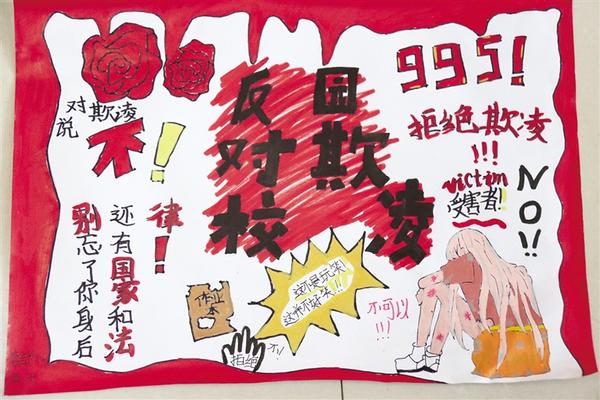 反对校
园欺凌
对欺凌
说
不！
995！
拒绝欺凌
!!!
victim
受害者！
NO!!
别忘了你身后
还有国家和法
律！
作业
本
这不是玩笑！
这并不好笑!!!
拒绝
不!!
不可以
!!!